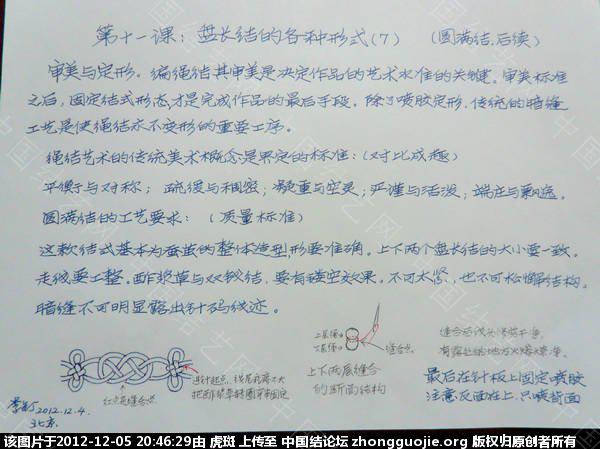 第十一课：盘长结的各种形式(7) (圆满结.后续)
审美与定形。编绳结其审美是决定作品的艺术水准的关键。审美标准
之后，固定结式形态，才是完成作品的最后手段。除了喷胶定形，传统的暗缝
工艺是使绳结永不变形的重要工序。
绳结艺术的传统美术概念是界定的标准：(对比成趣)
平衡与对称；疏缓与稠密；凝重与空灵；严谨与活泼；端庄与飘逸。
圆满结的工艺要求：(质量标准)
这款结式基本为蚕茧的整体造型，形要准确。上下两个盘长结的大小要一致。
走线要工整。酢浆草与双钱结，要有镂空效果。不可太紧，也不可松懈结构。
暗缝不可明显露出针码线迹。
二层绳
缝合点
上下两层缝合
的断面结构
红点为缝合点
最后在针板上固定喷胶
注意反面在上，只喷背面
2012.12.4.
北京
该图片于2012-12-05 20:46:29由 虎斑 上传至 中国结论坛 zhongguojie.org 版权归原创者所有